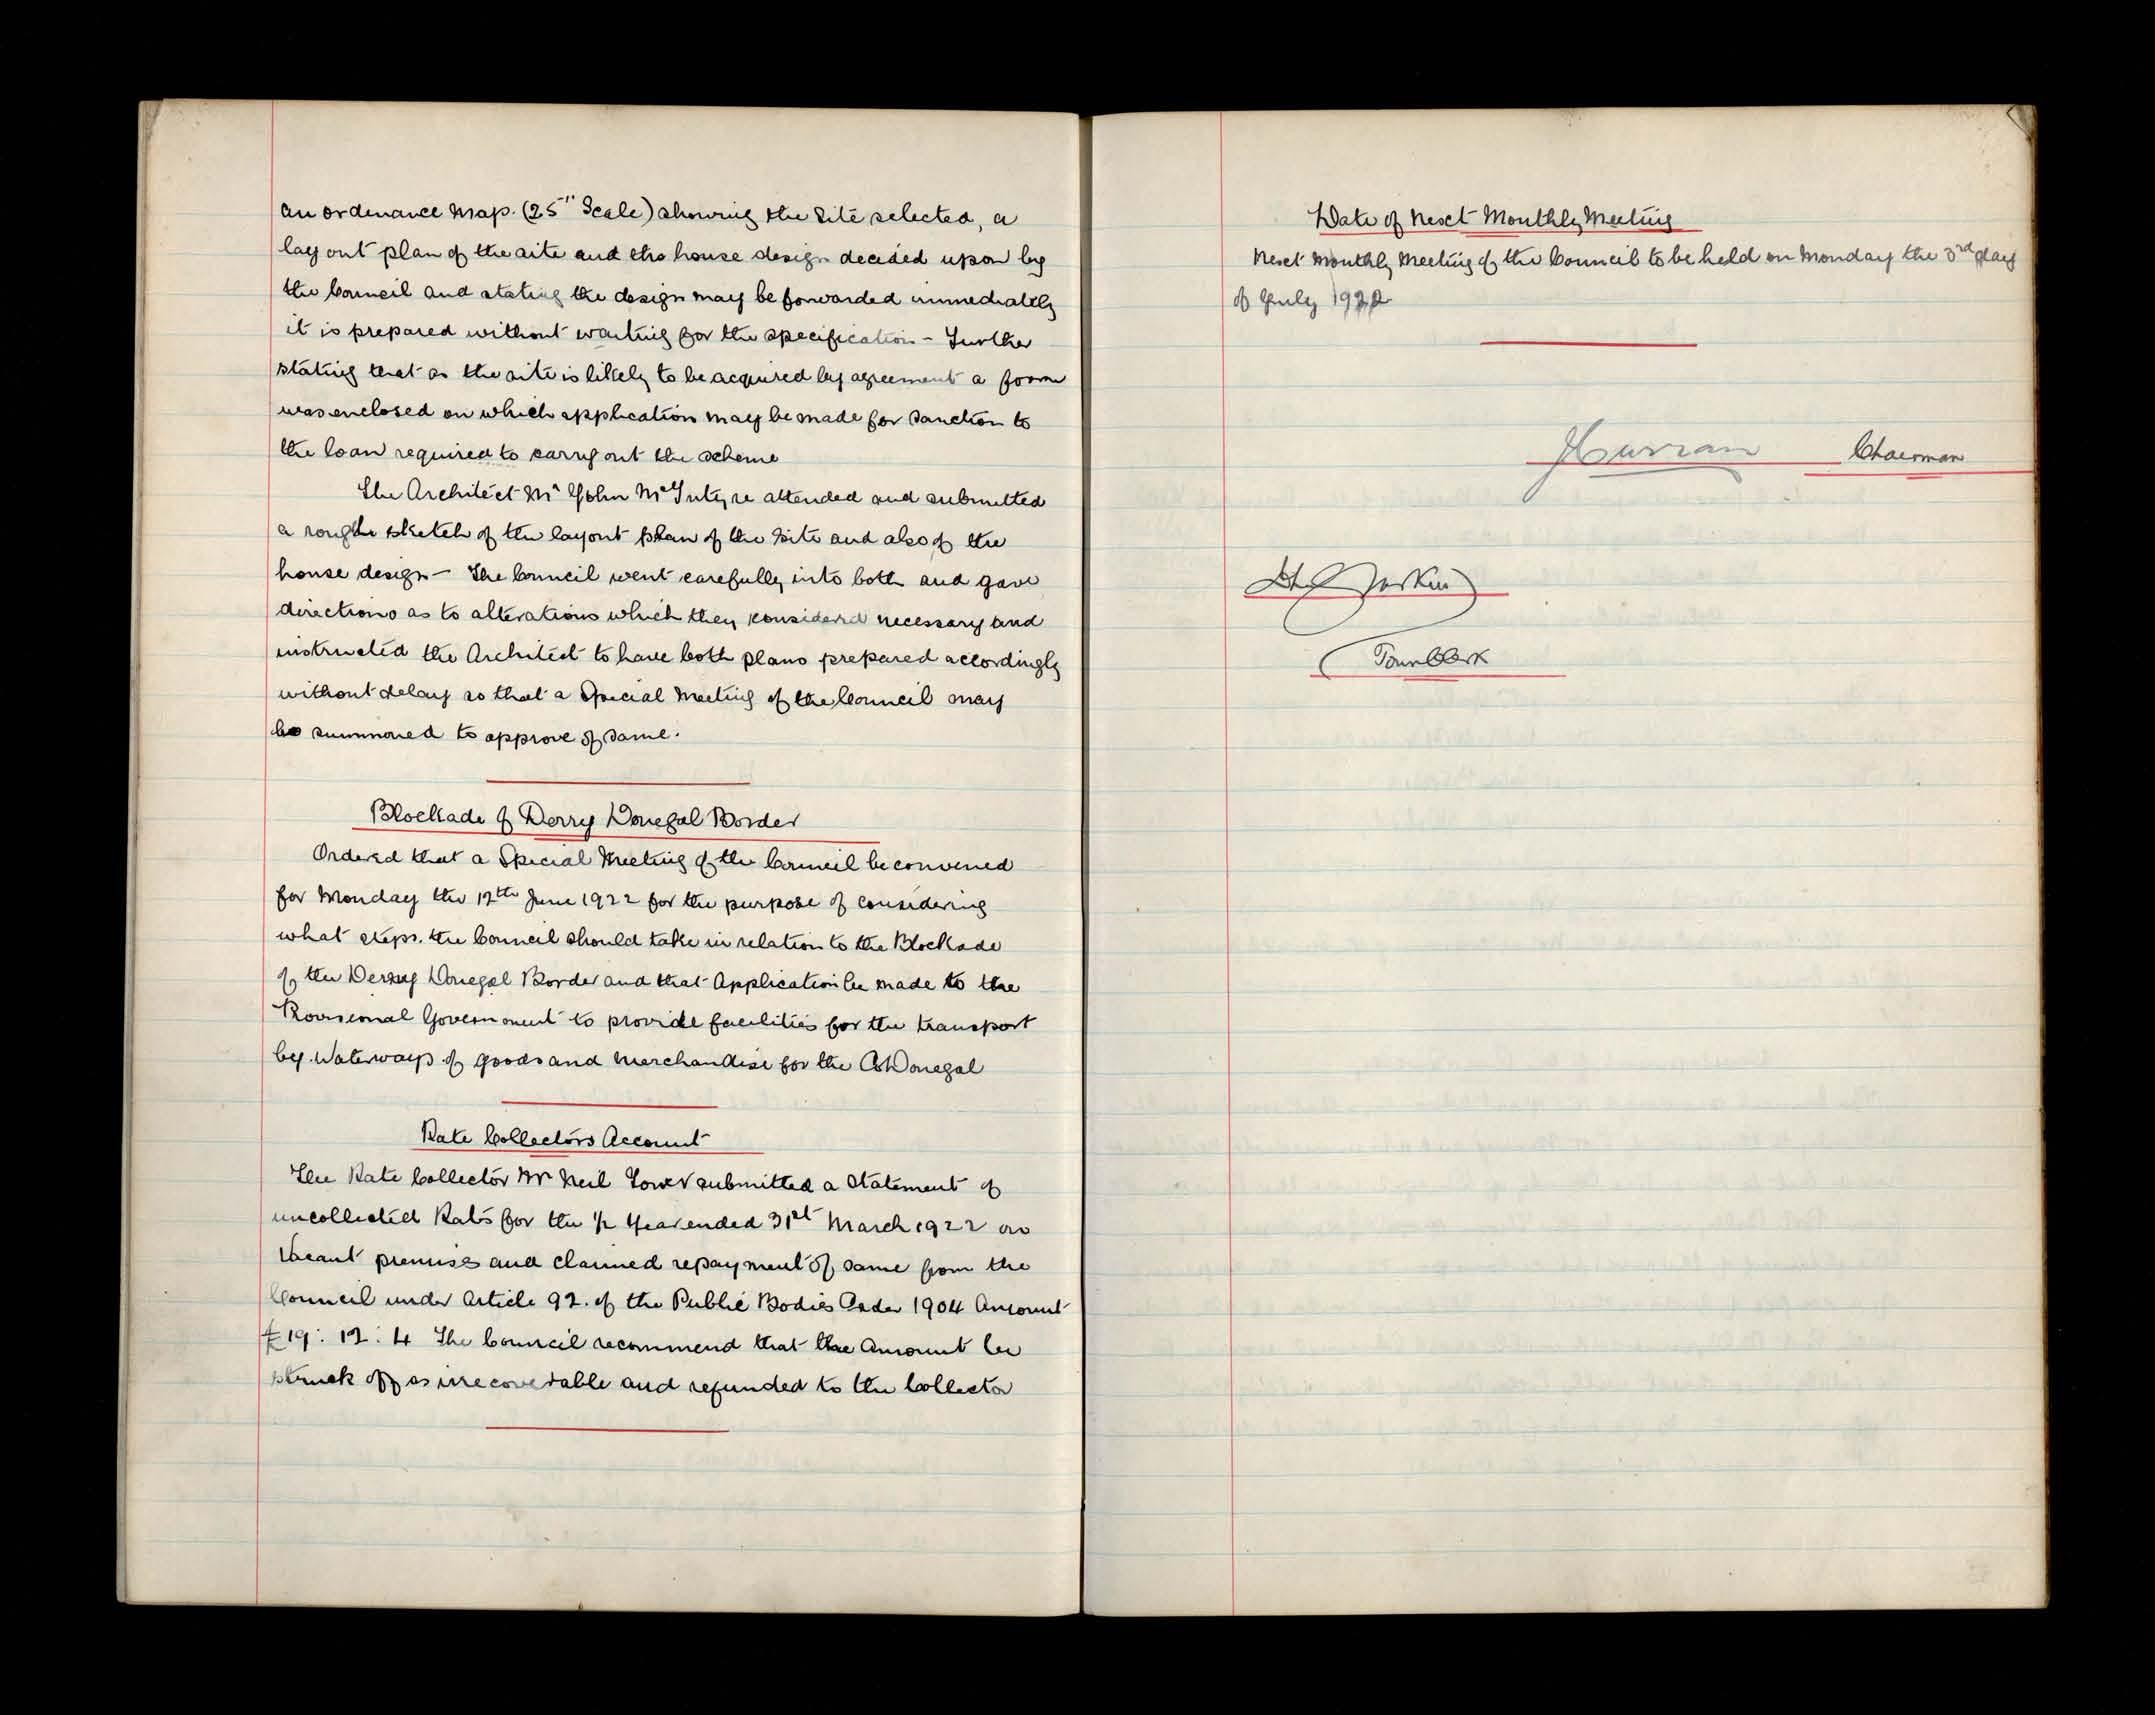 an ordenance Map. (25" Scale) showing the Site selected, a
lay out plan of the site and the house design decided upon by
the Council and stating the design may be forwarded immediately
it is prepared without waiting for the specification - Further
stating that as the site is likely to be acquired by agreement a form
was enclosed on which application may be made for Sanction to
the loan required to carry out the scheme
The Architect Mr John McIntyre attended and submitted
a rough sketch of the layout plan of the Site and also of the
house design - The Council went carefully into both and gave
directions as to alterations which they considered necessary and
instructed the Architect to have both plans prepared accordingly
without delay so that a Special Meeting of the Council may
be summoned to approve of same.
Blockade of Derry Donegal Border
Ordered that a Special Meeting of the Council be convened
for Monday the 12th June 1922 for the purpose of considering
what steps the Council should take in relation to the Blockade
of the Derry Donegal Border and that Application be made to the
Provisional Government to provide facilities for the transport
by Waterways of goods and Merchandise for the Co Donegal
Rate Collectors Account
The Rate Collector Mr Neil submitted a Statement of
uncollected Rates for the ½ Year ended 31st March 1922 on
Vacant premises and claimed repayment of same from the
Council under Article 92. of the Public Bodies Order 1904 Amount
£19: 12: 4 The Council recommend that the Amount be
struck off as irrecoverable and refunded to the Collector
Date of Next Monthly Meeting
Next Monthly Meeting of the Council to be held on Monday the 3rd day
of July 1922
Curran Chairman
Town Clerk